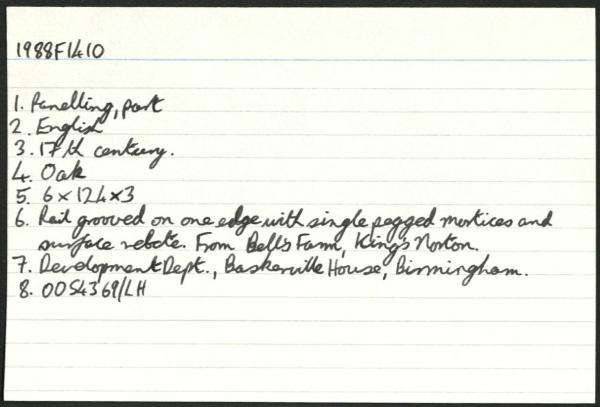 1988F1410
1. Panelling, part
2. English
3. 17th century.
4. Oak
5. 6 x 124 x 3
6. Rail grooved on one edge with single pegged mortices and
surface rebate. From Bell's Farm, King's Norton.
7. Development Dept., Baskerville House, Birmingham.
8. OOS4369/LH